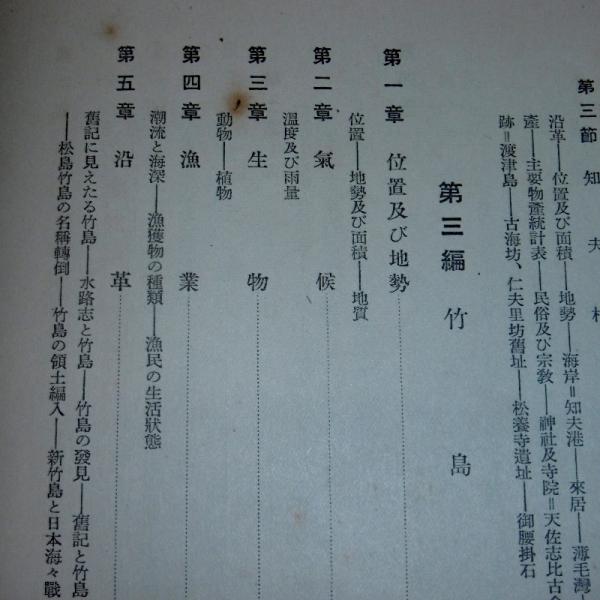 第三節 知夫村
沿革――位置及び面積――地勢――海岸＝知夫港――來居――薄毛灣
產――主要物產統計表――民俗及び宗教――神社及寺院＝天佐志比古命
跡＝渡津島――古海坊、仁夫里坊舊址――松養寺遺址――御腰掛石
第三編 竹島
第一章 位置及び地勢
位置――地勢及び面積――地質
第二章 氣候
溫度及び雨量
第三章 生物
動物――植物
第四章 漁業
潮流と海深――漁獲物の種類――漁民の生活狀態
第五章 沿革
舊記に見えたる竹島――水路志と竹島――竹島の發見――舊記と竹島
――松島竹島の名稱轉倒――竹島の領土編入――新竹島と日本海々戰